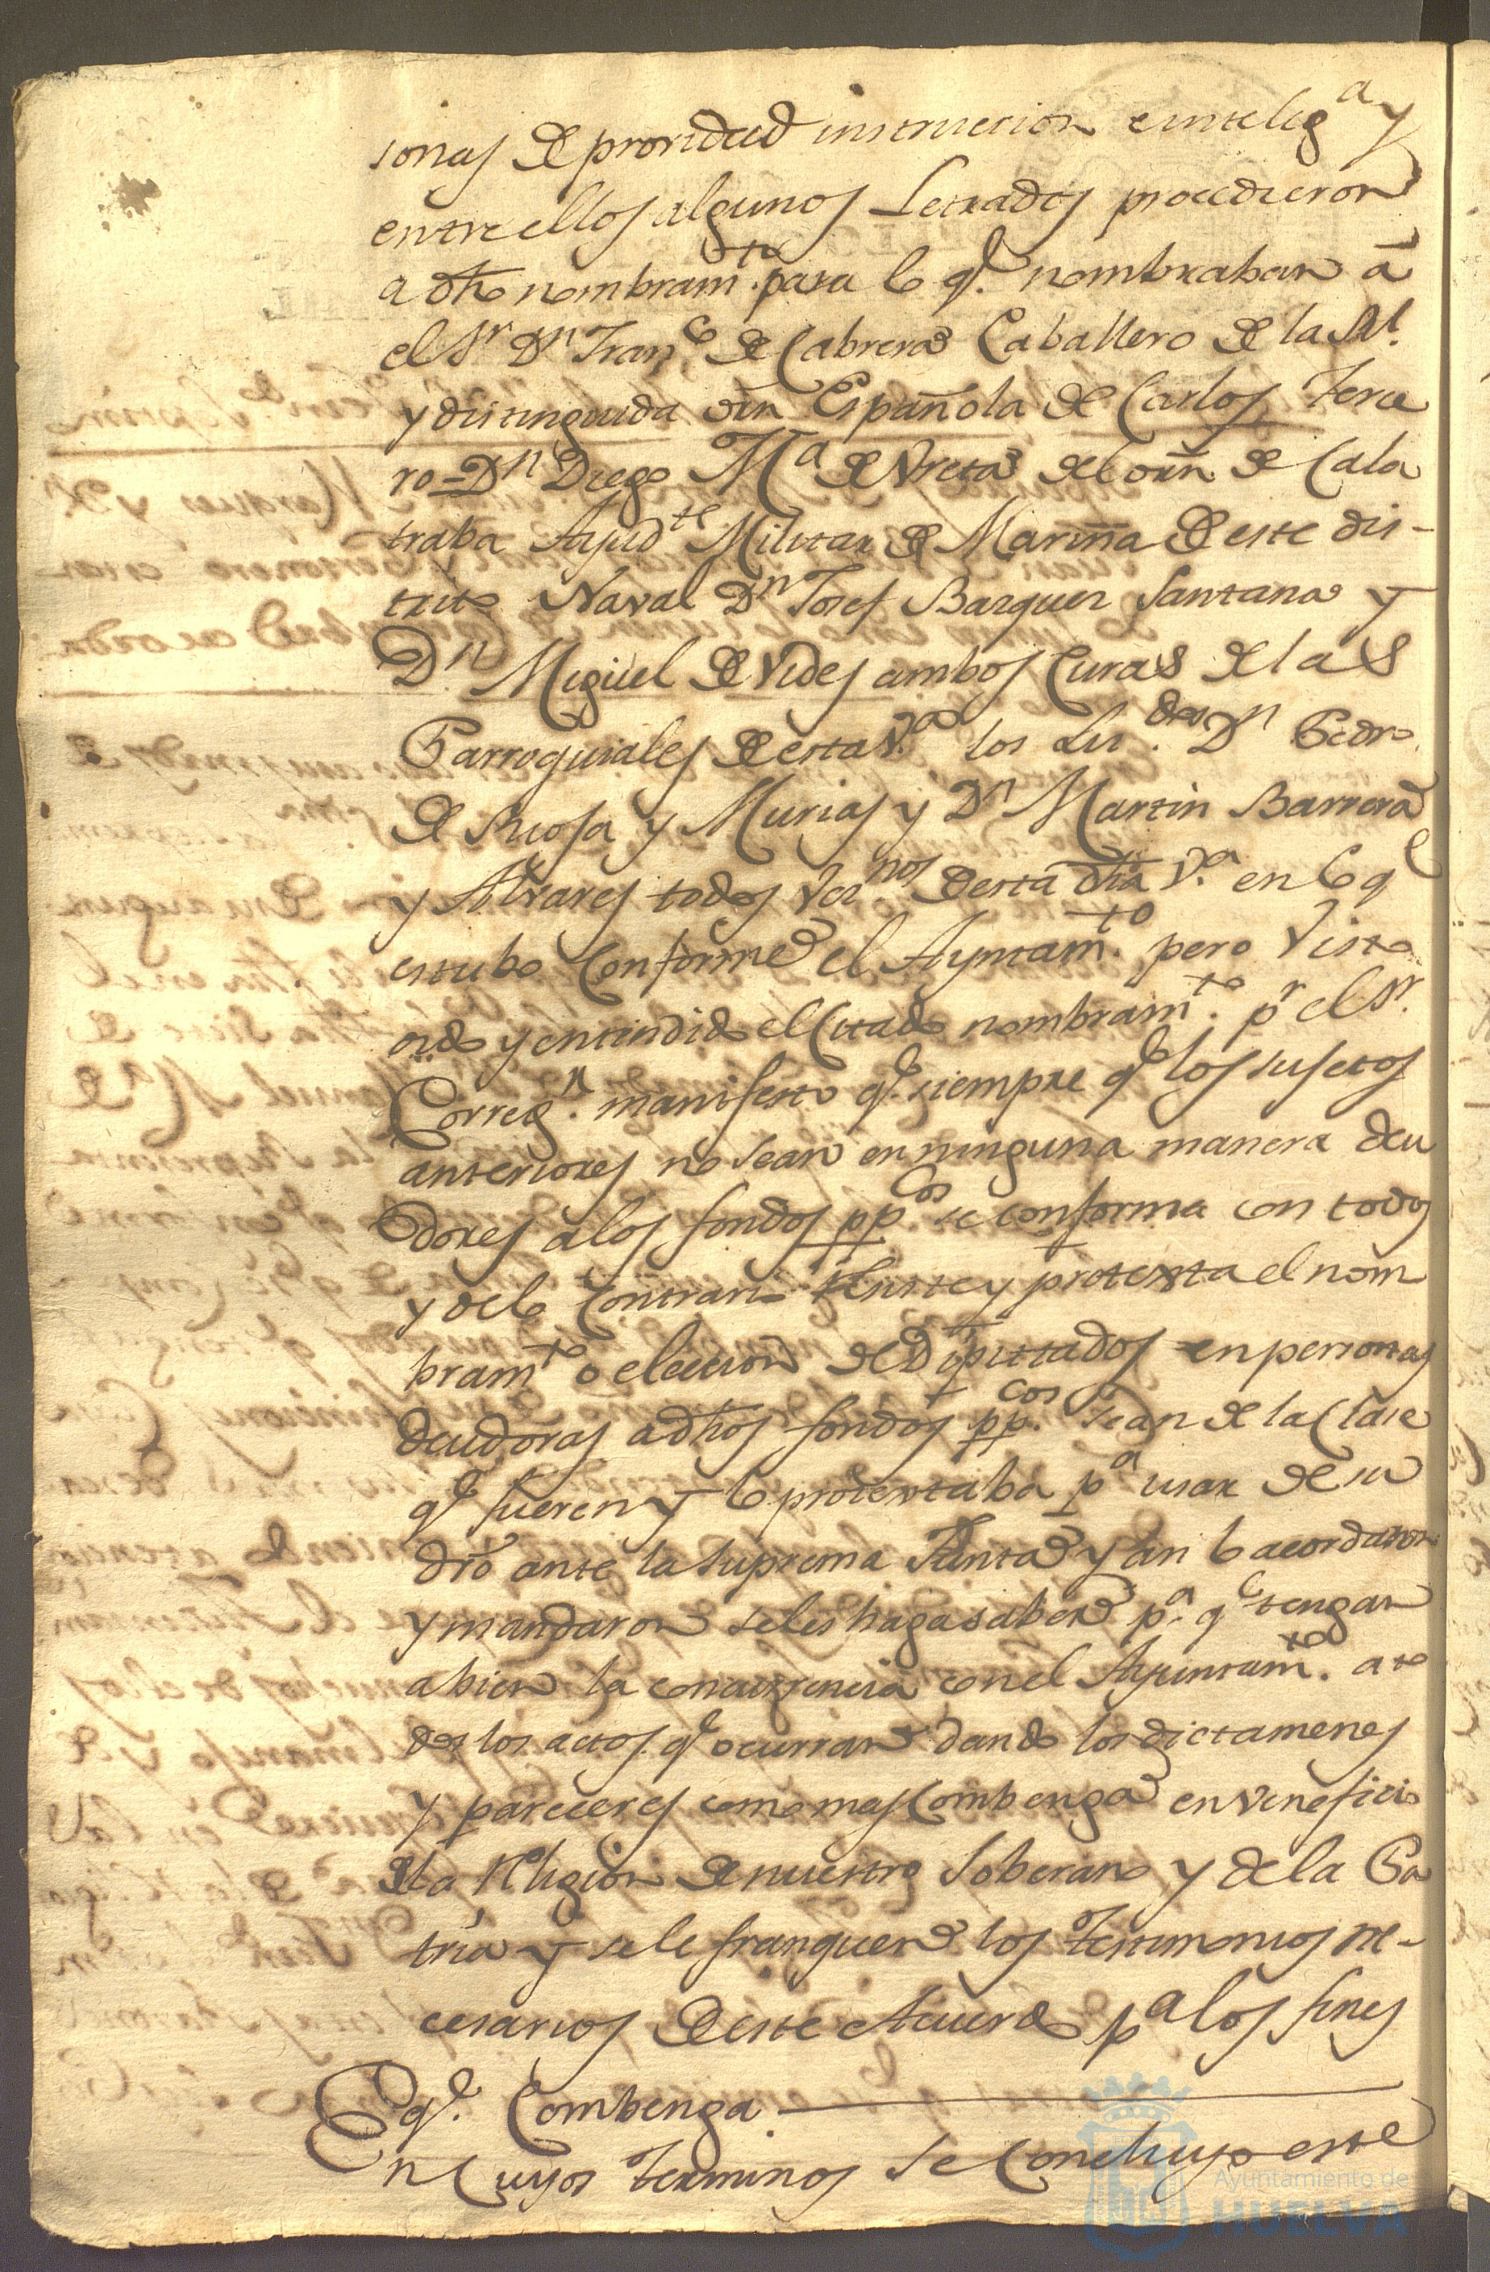 sonas de providad instruccion e intelig.ª y
entre ellos algunos Letrados procedieron
a dho nombram.to para lo q.e nombraban á
el S.r D.n Fran.co de Cabrera Caballero de la Rl.
y distinguida orn Española de Carlos Terce
ro = D.n Diego M.ª de Vreta del orn de Cala
traba Ayud.te Militar de Marina de este dis-
trito Naval D.n Josef Barquer Santana y
D.n Miguel de Vides ambos Curas de las
Parroquiales de esta V.ª los Lic.dos D.n Pedro
de Riosa y Murias y D.n Martin Barrera
y Alvares todos Vec.nos de esta dha V.ª en lo q.e
estubo Conforme el Ayuntam.to pero Visto
oido y entindido el Citado nombram.to p.r el S.r
Correg.r manifesto q.e siempre q.e los sujetos
anteriores no sean en ninguna manera deu
dores a los fondos pp.cos se conforma con todos
y de lo Contrario resiste y protexta el nom
bram.to o eleccion de Diputados en personas
deudoras a dhos fondos pp.cos sean de la Clase
q.e fueren y lo protextaba p.ª usar de su
dro ante la Suprema Junta y asi lo acordaron
y mandaron se les haga saber p.ª q.e tengan
a bien la concurrencia con el Ayuntam.to a to
dos los actos q.e ocurran dando los dictamenes
y pareceres como mas Combenga en veneficio
de la Religion de nuestro Soberano y de la Pa
tria y se le franqueen los Testimonios ne-
cesarios de este Acuerdo p.ª los fines
q.e Combenga
En Cuyos terminos se Concluyo este
Ayuntamiento de
HUELVA